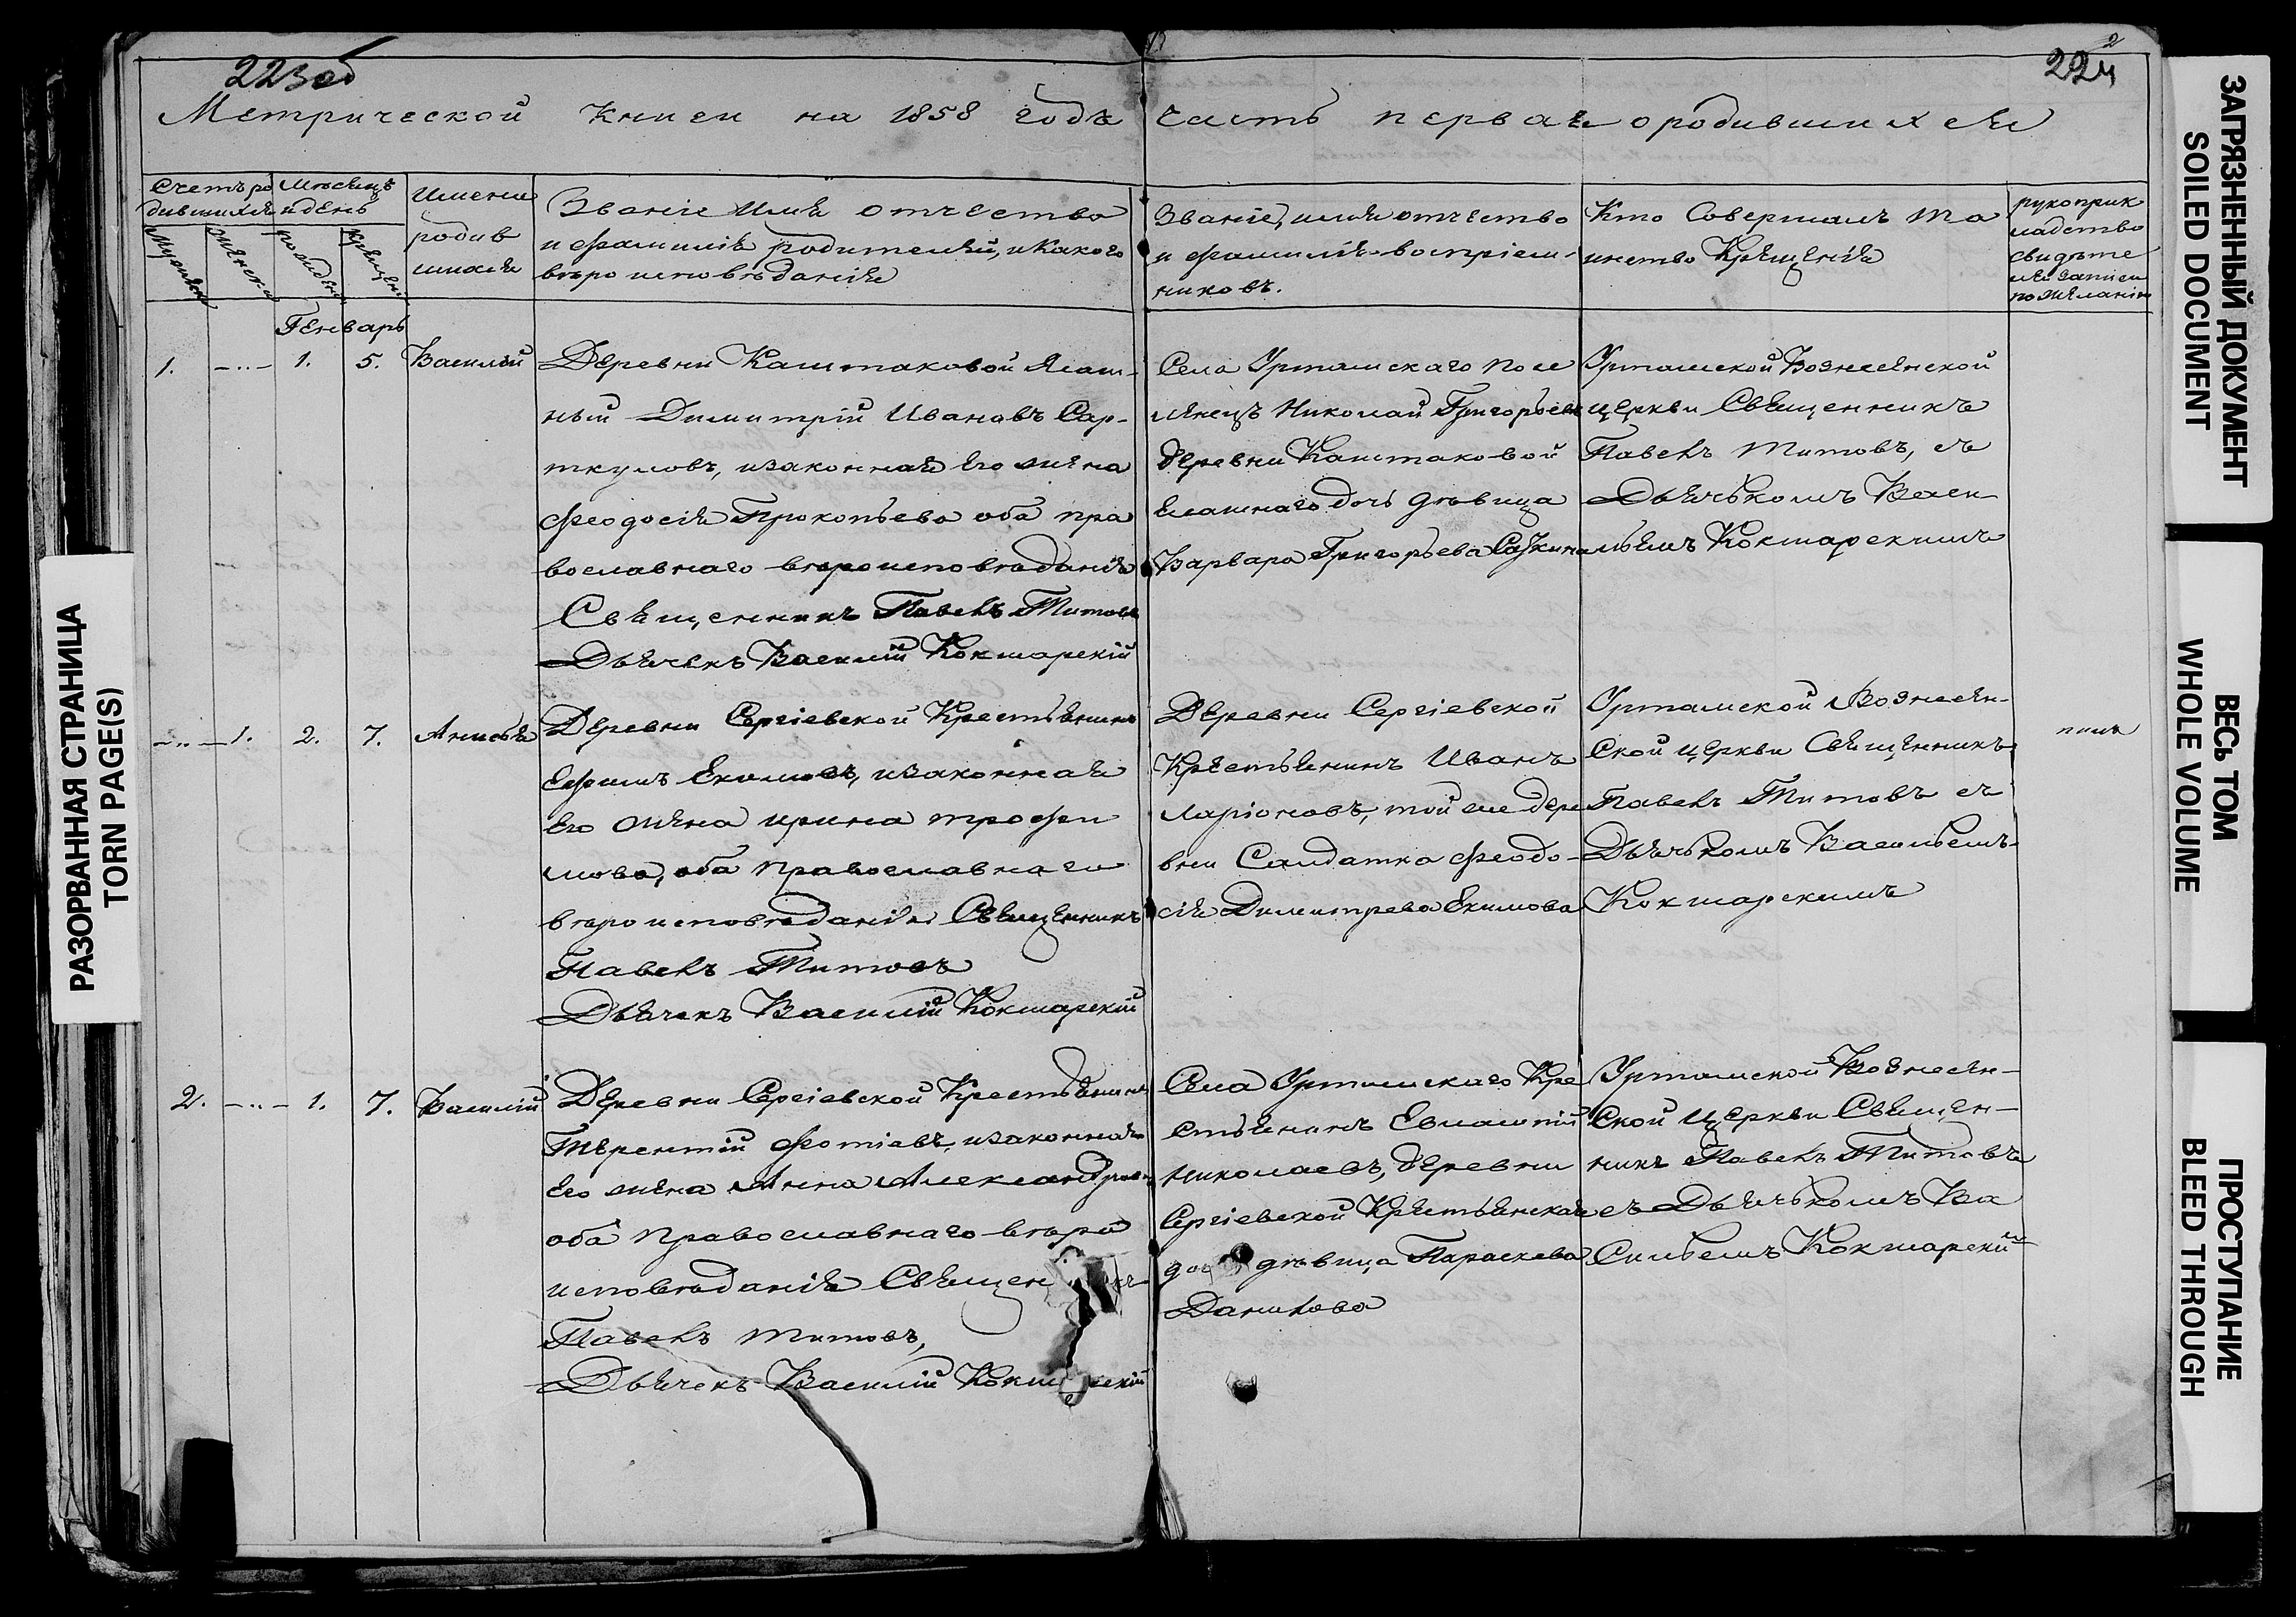 223об
2
224
Метрической книги на 1858 годъ часть первая о родившихся
Счетъ ро
дившихся
Мѣсяцъ
и день
мужеска
женска
рожденія
крещенія
Имена
родив
шихся
Званіе Имя отчество
и фамилія родителей, и какого
вѣроисповѣданія
Званіе, имя отчество
и фамилія воспріем-
никовъ.
Кто Совершалъ та
инство Крещенія
рукоприк
ладство
свидѣте
лей записи
по желанію
Генварь
1. -..- 1. 5. Василій
Деревни Каштаковой Ясаш-
ный Димитрій Ивановъ Сар-
ткуловъ, и законная Его жена
Феодосія Прокопьева оба пра
вославнаго вѣроисповѣданія
Священникъ Павелъ Титовъ
Дьячекъ Василій Кокшарскій
Села Уртамскаго посе
ленецъ Николай Григорьевъ
деревни Каштаковой
Ясашнаго дочь дѣвица
Варвара Григорьева
Уртамской Вознесенской
церкви Священникъ
Павелъ Титовъ, съ
Дьячькомъ Васи-
льемъ Кокшарскимъ
-..- 1. 2. 7. Анисья
Деревни Сергіевской Крестьянинъ
Ефимъ Екимовъ, и законная
Его жена Ирина Трофи
мова, оба православнаго
вѣроисповѣданія Священникъ
Павелъ Титовъ
Дьячекъ Василій Кокшарскій
Деревни Сергіевской
Крестьянинъ Иванъ
Ларіоновъ, той же дере
вни Салдатка Феодо-
сія Димитрева Екимова
Уртамской Вознесен-
ской церкви Священникъ
Павелъ Титовъ съ
Дьячькомъ Васильемъ
Кокшарскимъ
2. -..- 1. 7. Василій
Деревни Сергіевской Крестьянинъ
Терентій Фотіевъ, и законная
Его жена Анна Александрова
оба православнаго вѣро
исповѣданія Священникъ
Павелъ Титовъ,
Дьячекъ Василій Кокшарскій
Села Уртамскаго Кре
стьянинъ Евлампій
Николаевъ, деревни
Сергіевской Крестьянская
дочь дѣвица Параскева
Данилова
Уртамской Вознесен-
ской церкви Священ-
никъ Павелъ Титовъ
съ Дьячькомъ Ва
сильемъ Кокшарскимъ
РАЗОРВАННАЯ СТРАНИЦА
TORN PAGE(S)
ЗАГРЯЗНЕННЫЙ ДОКУМЕНТ
SOILED DOCUMENT
ВЕСЬ ТОМ
WHOLE VOLUME
ПРОСТУПАНИЕ
BLEED THROUGH